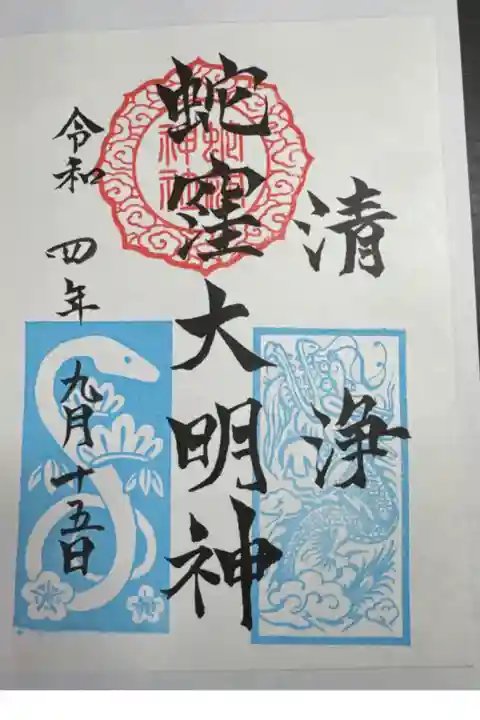 清浄
蛇窪大明神
蛇窪神社
令和四年九月十五日